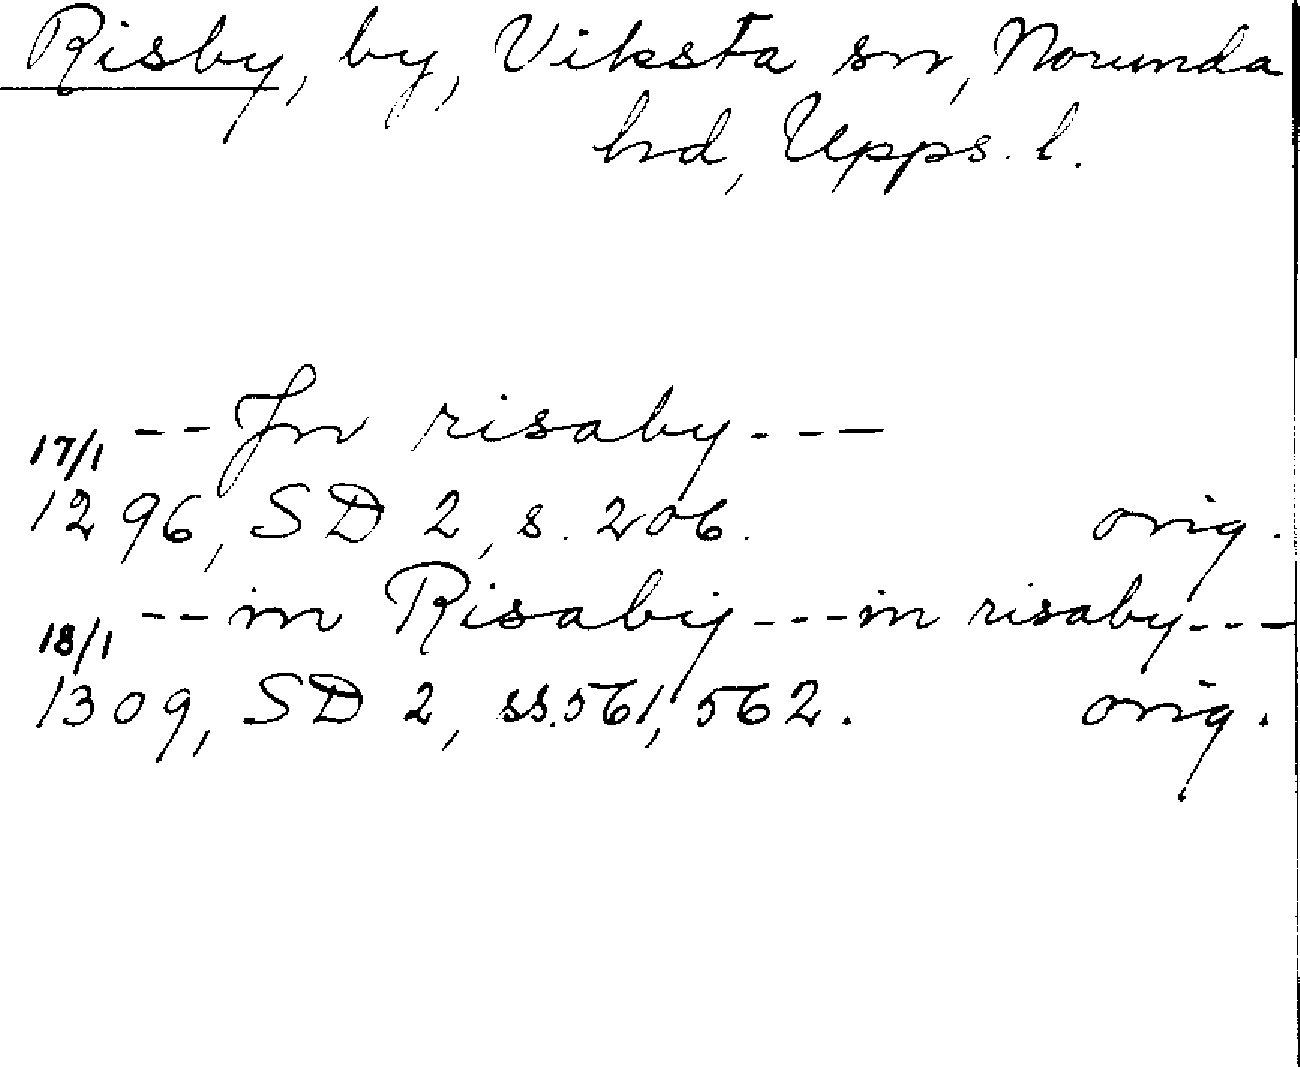 Risby, by, Viksta sn, Norunda
hd, Upps. l.
17/1 -- Jn risaby ---
1296, SD 2, s. 206. orig.
18/1 -- in Risaby --- in risaby ---
1309, SD 2, ss. 561, 562. orig.